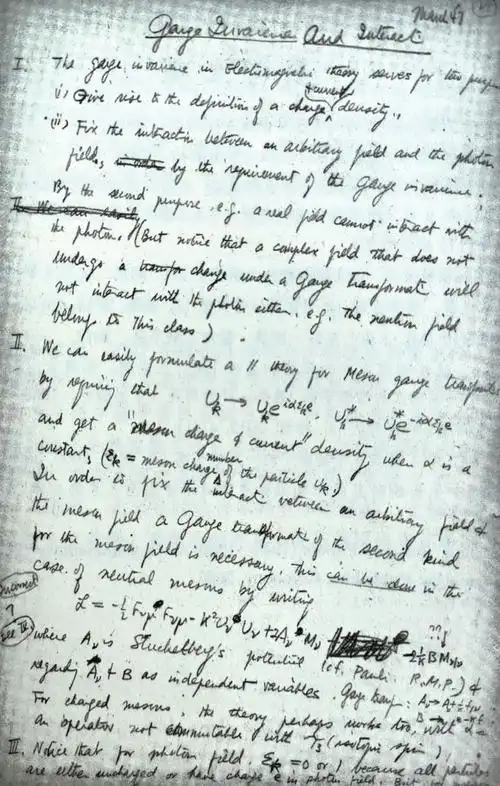 March 47
Gauge Invariance And Interact
I. The gauge invariance in Electromagnetic theory serves for two
i) Give rise to the definition of a charge & current density.,
(ii) Fix the interaction between an arbitrary field and the photon
fields, by the requirement of the Gauge invariance.
By the second purpose, e.g. a real field cannot interact with
the photon. (But notice that a complex field that does not
undergo a change under a Gauge transformat will
not interact with the photon either. e.g. the neutron field
belongs to this class)
II. We can easily formulate a // theory for Meson gauge transformat
by requiring that U_k → U_k e^{iαε_k e}, U_k^* → U_k^* e^{-iαε_k e}
and get a "meson charge & current" density when α is a
constant, (ε_k = meson charge number of the particle U_k.)
In order to fix the interact between an arbitrary field &
the meson field a Gauge transformat of the second kind
for the meson field is necessary. This can be done in the
incorrect
case of neutral mesons by writing
see IV
where A_ν is Stuckelberg's potential (cf. Pauli R.M.P.) &
regarding A_ν & B as independent variables. Gauge transf:
For charged mesons, the theory perhaps works too, with α =
an operator not commutable with τ_3 (isotopic spin)
III. Notice that for photon field, ε_k = 0 or 1 because all particles
are either uncharged or have charge e in photon field. But